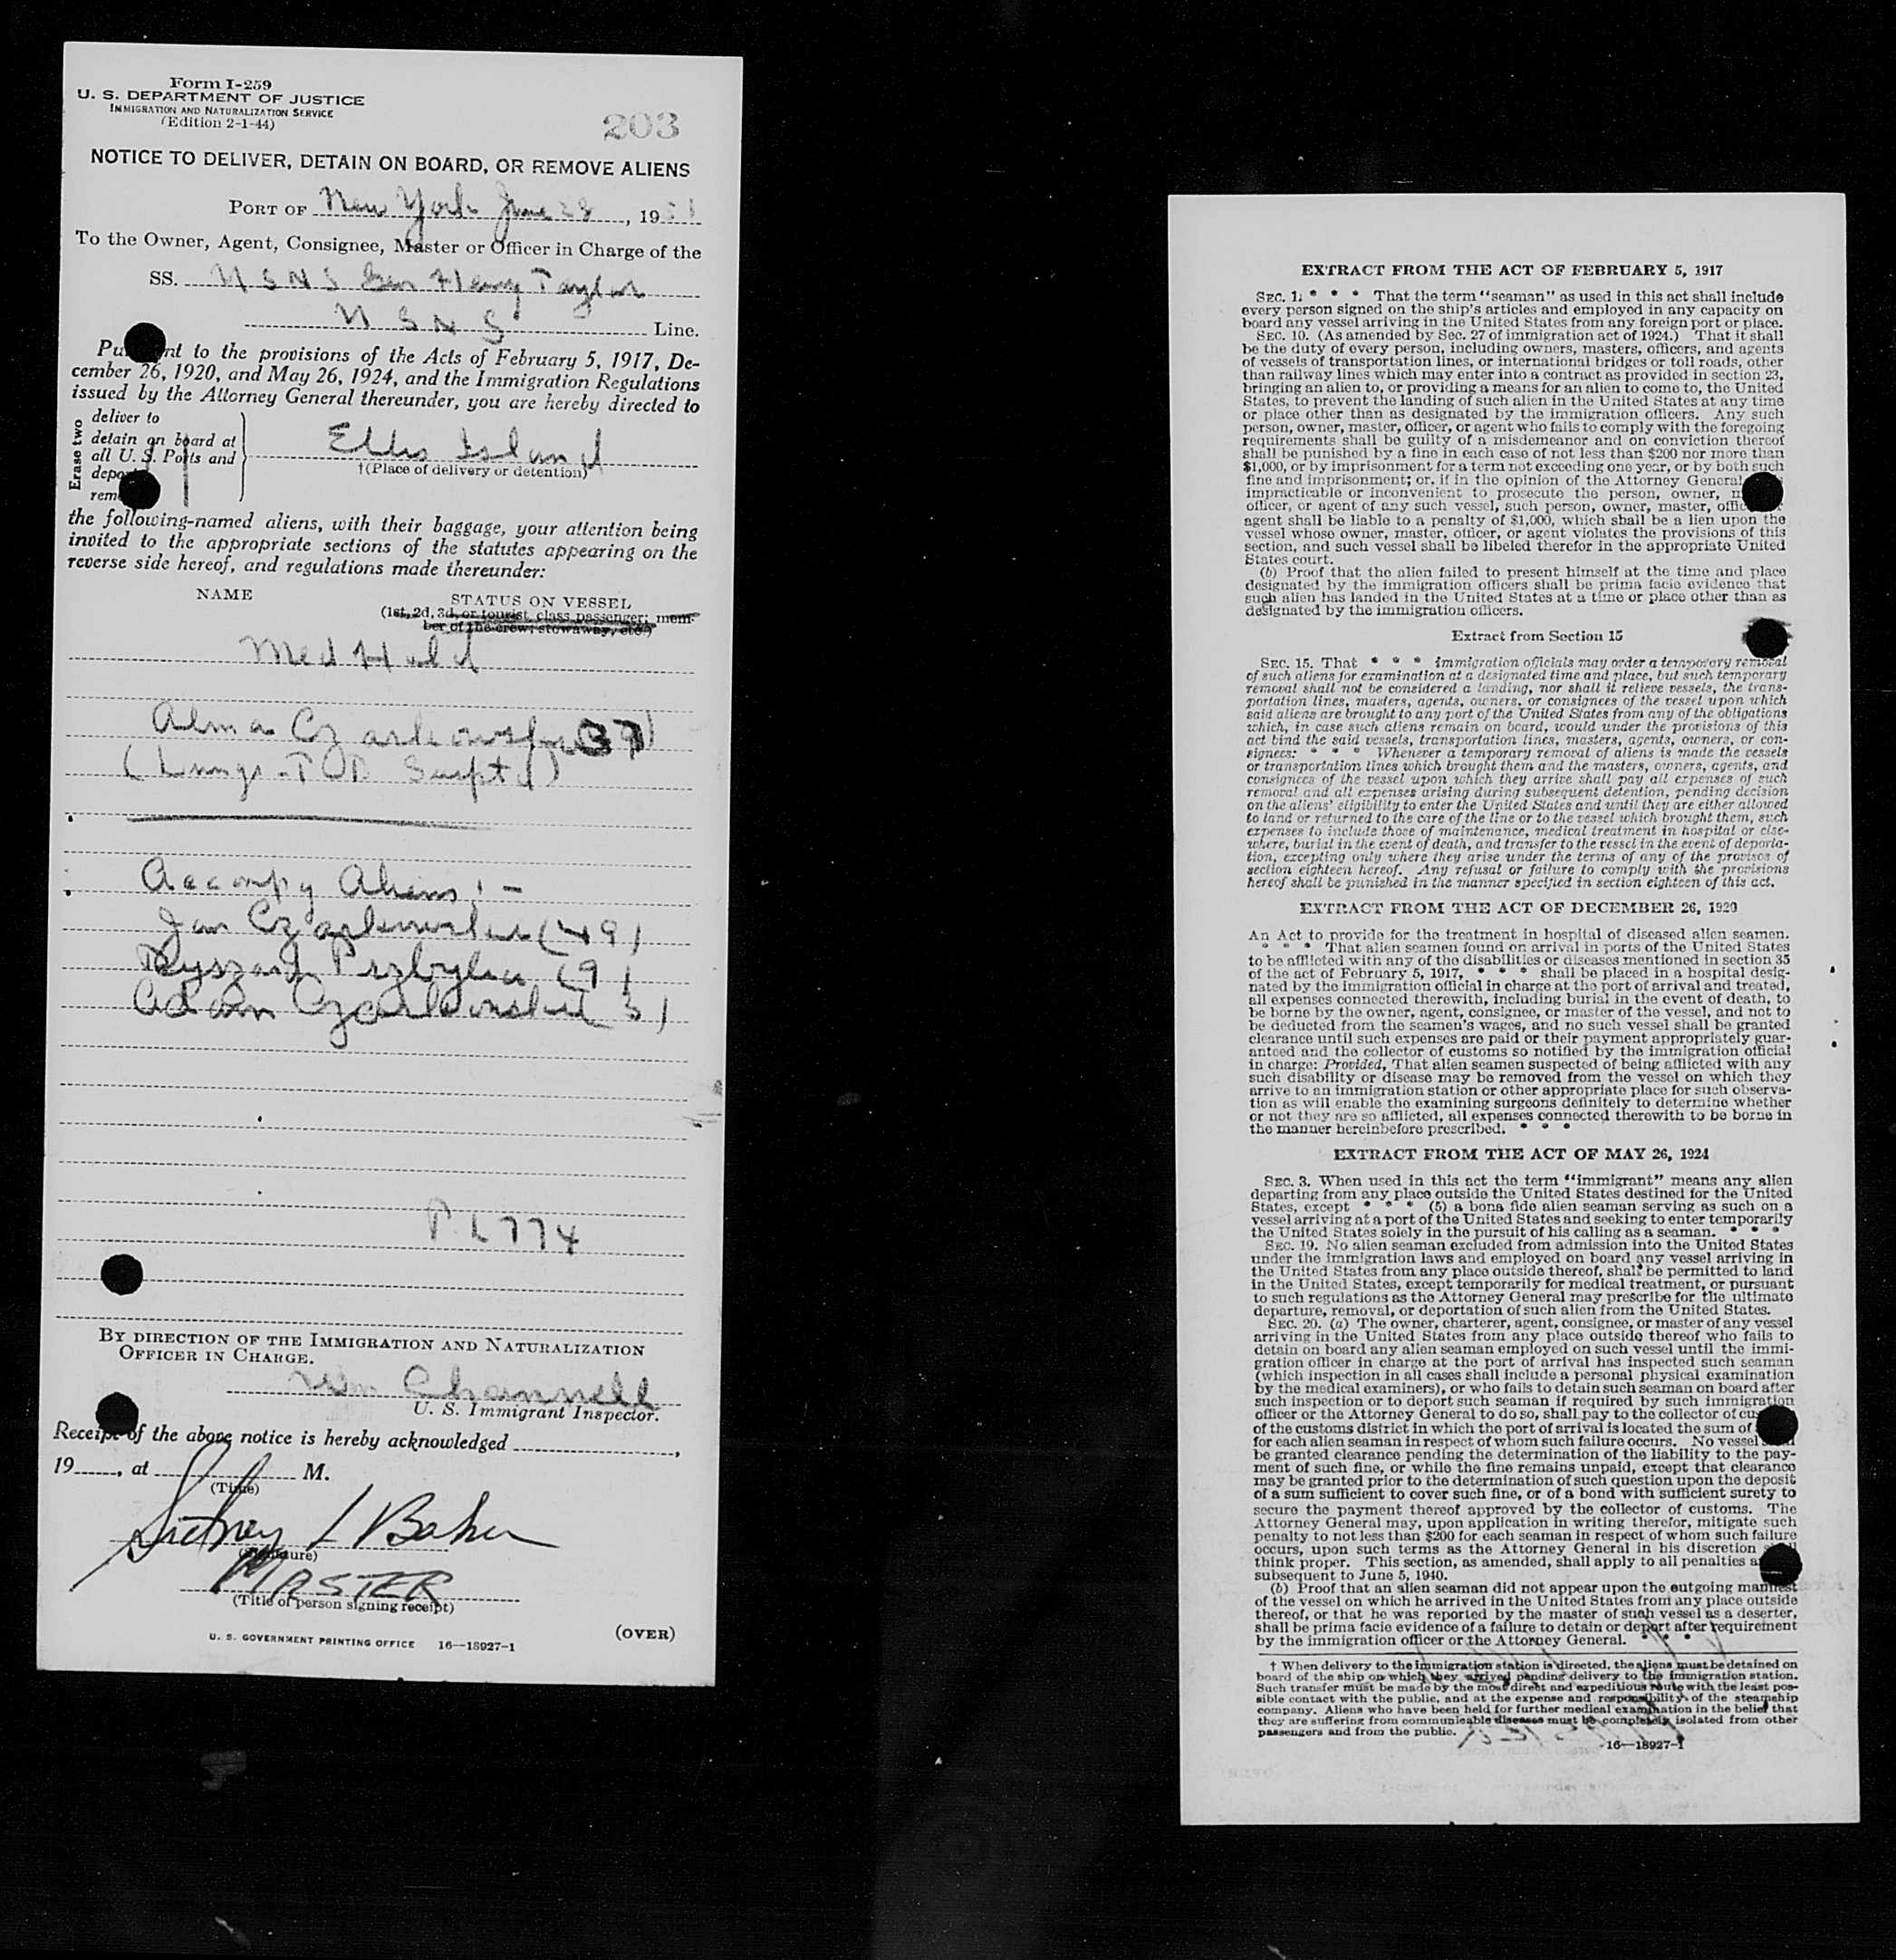 Form I-259
U. S. DEPARTMENT OF JUSTICE
IMMIGRATION AND NATURALIZATION SERVICE
(Edition 2-1-44)
203
NOTICE TO DELIVER, DETAIN ON BOARD, OR REMOVE ALIENS
PORT OF New York June 28, 19
To the Owner, Agent, Consignee, Master or Officer in Charge of the
SS. USNS Gen Henry Taylor
USNS Line.
Pursuant to the provisions of the Acts of February 5, 1917, De-
cember 26, 1920, and May 26, 1924, and the Immigration Regulations
issued by the Attorney General thereunder, you are hereby directed to
Erase two
deliver to
detain on board at
all U. S. Ports and
deport
remove
Ellis Island
†(Place of delivery or detention)
the following-named aliens, with their baggage, your attention being
invited to the appropriate sections of the statutes appearing on the
reverse side hereof, and regulations made thereunder:
NAME STATUS ON VESSEL
(1st, 2d, 3d, or tourist, class passenger; mem-
ber of the crew; stowaway, etc.)
Med Hold
Alma
(Lungs - Suspt)
Accompy Aliens: -
Jan Czarkowski (49)
Ryszard (9)
Adam Czarkowski 3)
P L 774
BY DIRECTION OF THE IMMIGRATION AND NATURALIZATION
OFFICER IN CHARGE.
Wm Channell
U. S. Immigrant Inspector.
Receipt of the above notice is hereby acknowledged ,
19 , at M.
(Time)
Sidney L Baker
(Signature)
MASTER
(Title of person signing receipt)
(OVER)
U. S. GOVERNMENT PRINTING OFFICE 16—18927-1
EXTRACT FROM THE ACT OF FEBRUARY 5, 1917
SEC. 1. * * * That the term "seaman" as used in this act shall include
every person signed on the ship's articles and employed in any capacity on
board any vessel arriving in the United States from any foreign port or place.
SEC. 10. (As amended by Sec. 27 of immigration act of 1924.) That it shall
be the duty of every person, including owners, masters, officers, and agents
of vessels of transportation lines, or international bridges or toll roads, other
than railway lines which may enter into a contract as provided in section 23,
bringing an alien to, or providing a means for an alien to come to, the United
States, to prevent the landing of such alien in the United States at any time
or place other than as designated by the immigration officers. Any such
person, owner, master, officer, or agent who fails to comply with the foregoing
requirements shall be guilty of a misdemeanor and on conviction thereof
shall be punished by a fine in each case of not less than $200 nor more than
$1,000, or by imprisonment for a term not exceeding one year, or by both such
fine and imprisonment; or, if in the opinion of the Attorney General
impracticable or inconvenient to prosecute the person, owner,
officer, or agent of any such vessel, such person, owner, master, officer
agent shall be liable to a penalty of $1,000, which shall be a lien upon the
vessel whose owner, master, officer, or agent violates the provisions of this
section, and such vessel shall be libeled therefor in the appropriate United
States court.
(b) Proof that the alien failed to present himself at the time and place
designated by the immigration officers shall be prima facie evidence that
such alien has landed in the United States at a time or place other than as
designated by the immigration officers.
Extract from Section 15
SEC. 15. That * * * immigration officials may order a temporary removal
of such aliens for examination at a designated time and place, but such temporary
removal shall not be considered a landing, nor shall it relieve vessels, the trans-
portation lines, masters, agents, owners, or consignees of the vessel upon which
said aliens are brought to any port of the United States from any of the obligations
which, in case such aliens remain on board, would under the provisions of this
act bind the said vessels, transportation lines, masters, agents, owners, or con-
signees: * * * Whenever a temporary removal of aliens is made the vessels
or transportation lines which brought them and the masters, owners, agents, and
consignees of the vessel upon which they arrive shall pay all expenses of such
removal and all expenses arising during subsequent detention, pending decision
on the aliens' eligibility to enter the United States and until they are either allowed
to land or returned to the care of the line or to the vessel which brought them, such
expenses to include those of maintenance, medical treatment in hospital or else-
where, burial in the event of death, and transfer to the vessel in the event of deporta-
tion, excepting only where they arise under the terms of any of the provisos of
section eighteen hereof. Any refusal or failure to comply with the provisions
hereof shall be punished in the manner specified in section eighteen of this act.
EXTRACT FROM THE ACT OF DECEMBER 26, 1920
An Act to provide for the treatment in hospital of diseased alien seamen.
* * * That alien seamen found on arrival in ports of the United States
to be afflicted with any of the disabilities or diseases mentioned in section 35
of the act of February 5, 1917, * * * shall be placed in a hospital desig-
nated by the immigration official in charge at the port of arrival and treated,
all expenses connected therewith, including burial in the event of death, to
be borne by the owner, agent, consignee, or master of the vessel, and not to
be deducted from the seamen's wages, and no such vessel shall be granted
clearance until such expenses are paid or their payment appropriately guar-
anteed and the collector of customs so notified by the immigration official
in charge: Provided, That alien seamen suspected of being afflicted with any
such disability or disease may be removed from the vessel on which they
arrive to an immigration station or other appropriate place for such observa-
tion as will enable the examining surgeons definitely to determine whether
or not they are so afflicted, all expenses connected therewith to be borne in
the manner hereinbefore prescribed. * * *
EXTRACT FROM THE ACT OF MAY 26, 1924
SEC. 3. When used in this act the term "immigrant" means any alien
departing from any place outside the United States destined for the United
States, except * * * (5) a bona fide alien seaman serving as such on a
vessel arriving at a port of the United States and seeking to enter temporarily
the United States solely in the pursuit of his calling as a seaman. * * *
SEC. 19. No alien seaman excluded from admission into the United States
under the immigration laws and employed on board any vessel arriving in
the United States from any place outside thereof, shall be permitted to land
in the United States, except temporarily for medical treatment, or pursuant
to such regulations as the Attorney General may prescribe for the ultimate
departure, removal, or deportation of such alien from the United States.
SEC. 20. (a) The owner, charterer, agent, consignee, or master of any vessel
arriving in the United States from any place outside thereof who fails to
detain on board any alien seaman employed on such vessel until the immi-
gration officer in charge at the port of arrival has inspected such seaman
(which inspection in all cases shall include a personal physical examination
by the medical examiners), or who fails to detain such seaman on board after
such inspection or to deport such seaman if required by such immigration
officer or the Attorney General to do so, shall pay to the collector of customs
of the customs district in which the port of arrival is located the sum of
for each alien seaman in respect of whom such failure occurs. No vessel shall
be granted clearance pending the determination of the liability to the pay-
ment of such fine, or while the fine remains unpaid, except that clearance
may be granted prior to the determination of such question upon the deposit
of a sum sufficient to cover such fine, or of a bond with sufficient surety to
secure the payment thereof approved by the collector of customs. The
Attorney General may, upon application in writing therefor, mitigate such
penalty to not less than $200 for each seaman in respect of whom such failure
occurs, upon such terms as the Attorney General in his discretion shall
think proper. This section, as amended, shall apply to all penalties
subsequent to June 5, 1940.
(b) Proof that an alien seaman did not appear upon the outgoing manifest
of the vessel on which he arrived in the United States from any place outside
thereof, or that he was reported by the master of such vessel as a deserter,
shall be prima facie evidence of a failure to detain or deport after requirement
by the immigration officer or the Attorney General. * * *
† When delivery to the immigration station is directed, the aliens must be detained on
board of the ship on which they arrived pending delivery to the immigration station.
Such transfer must be made by the most direct and expeditious route with the least pos-
sible contact with the public, and at the expense and responsibility of the steamship
company. Aliens who have been held for further medical examination in the belief that
they are suffering from communicable diseases must be completely isolated from other
passengers and from the public.
16—18927-1